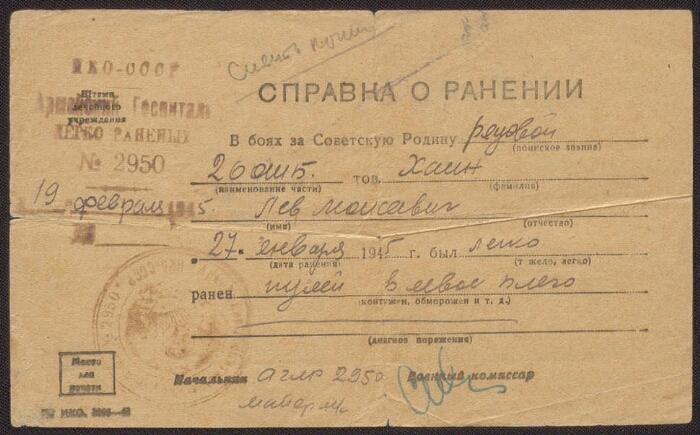 НКО-СССР
Штамп
лечебного
учреждения
Армейский Госпиталь
ЛЕГКО РАНЕНЫХ
№ 2950
19 февраля 1945.
СПРАВКА О РАНЕНИИ
В боях за Советскую Родину рядовой
(воинское звание)
26 отб. тов. Хаин
(наименование части) (фамилия)
Лев Моисавич
(имя) (отчество)
"27" января 1945 г. был легко
(дата ранения) (тяжело, легко)
ранен пулей в левое плечо
(контужен, обморожен и т. д.)
(диагноз поражения)
Место
для
печати
Начальник АГЛР 2950 Военный комиссар
майор м/с